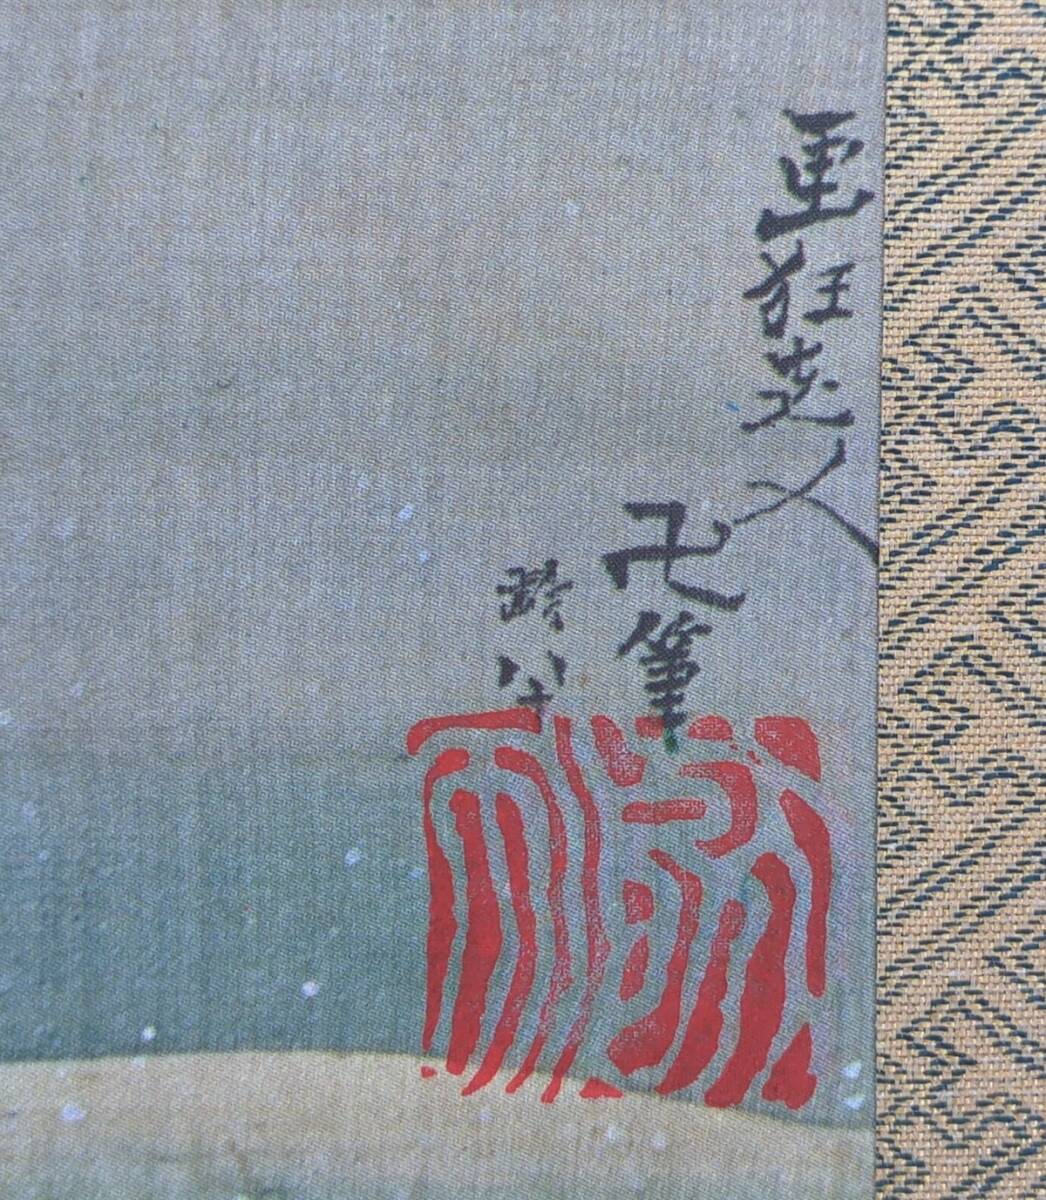 画狂老人
卍筆
齢八十